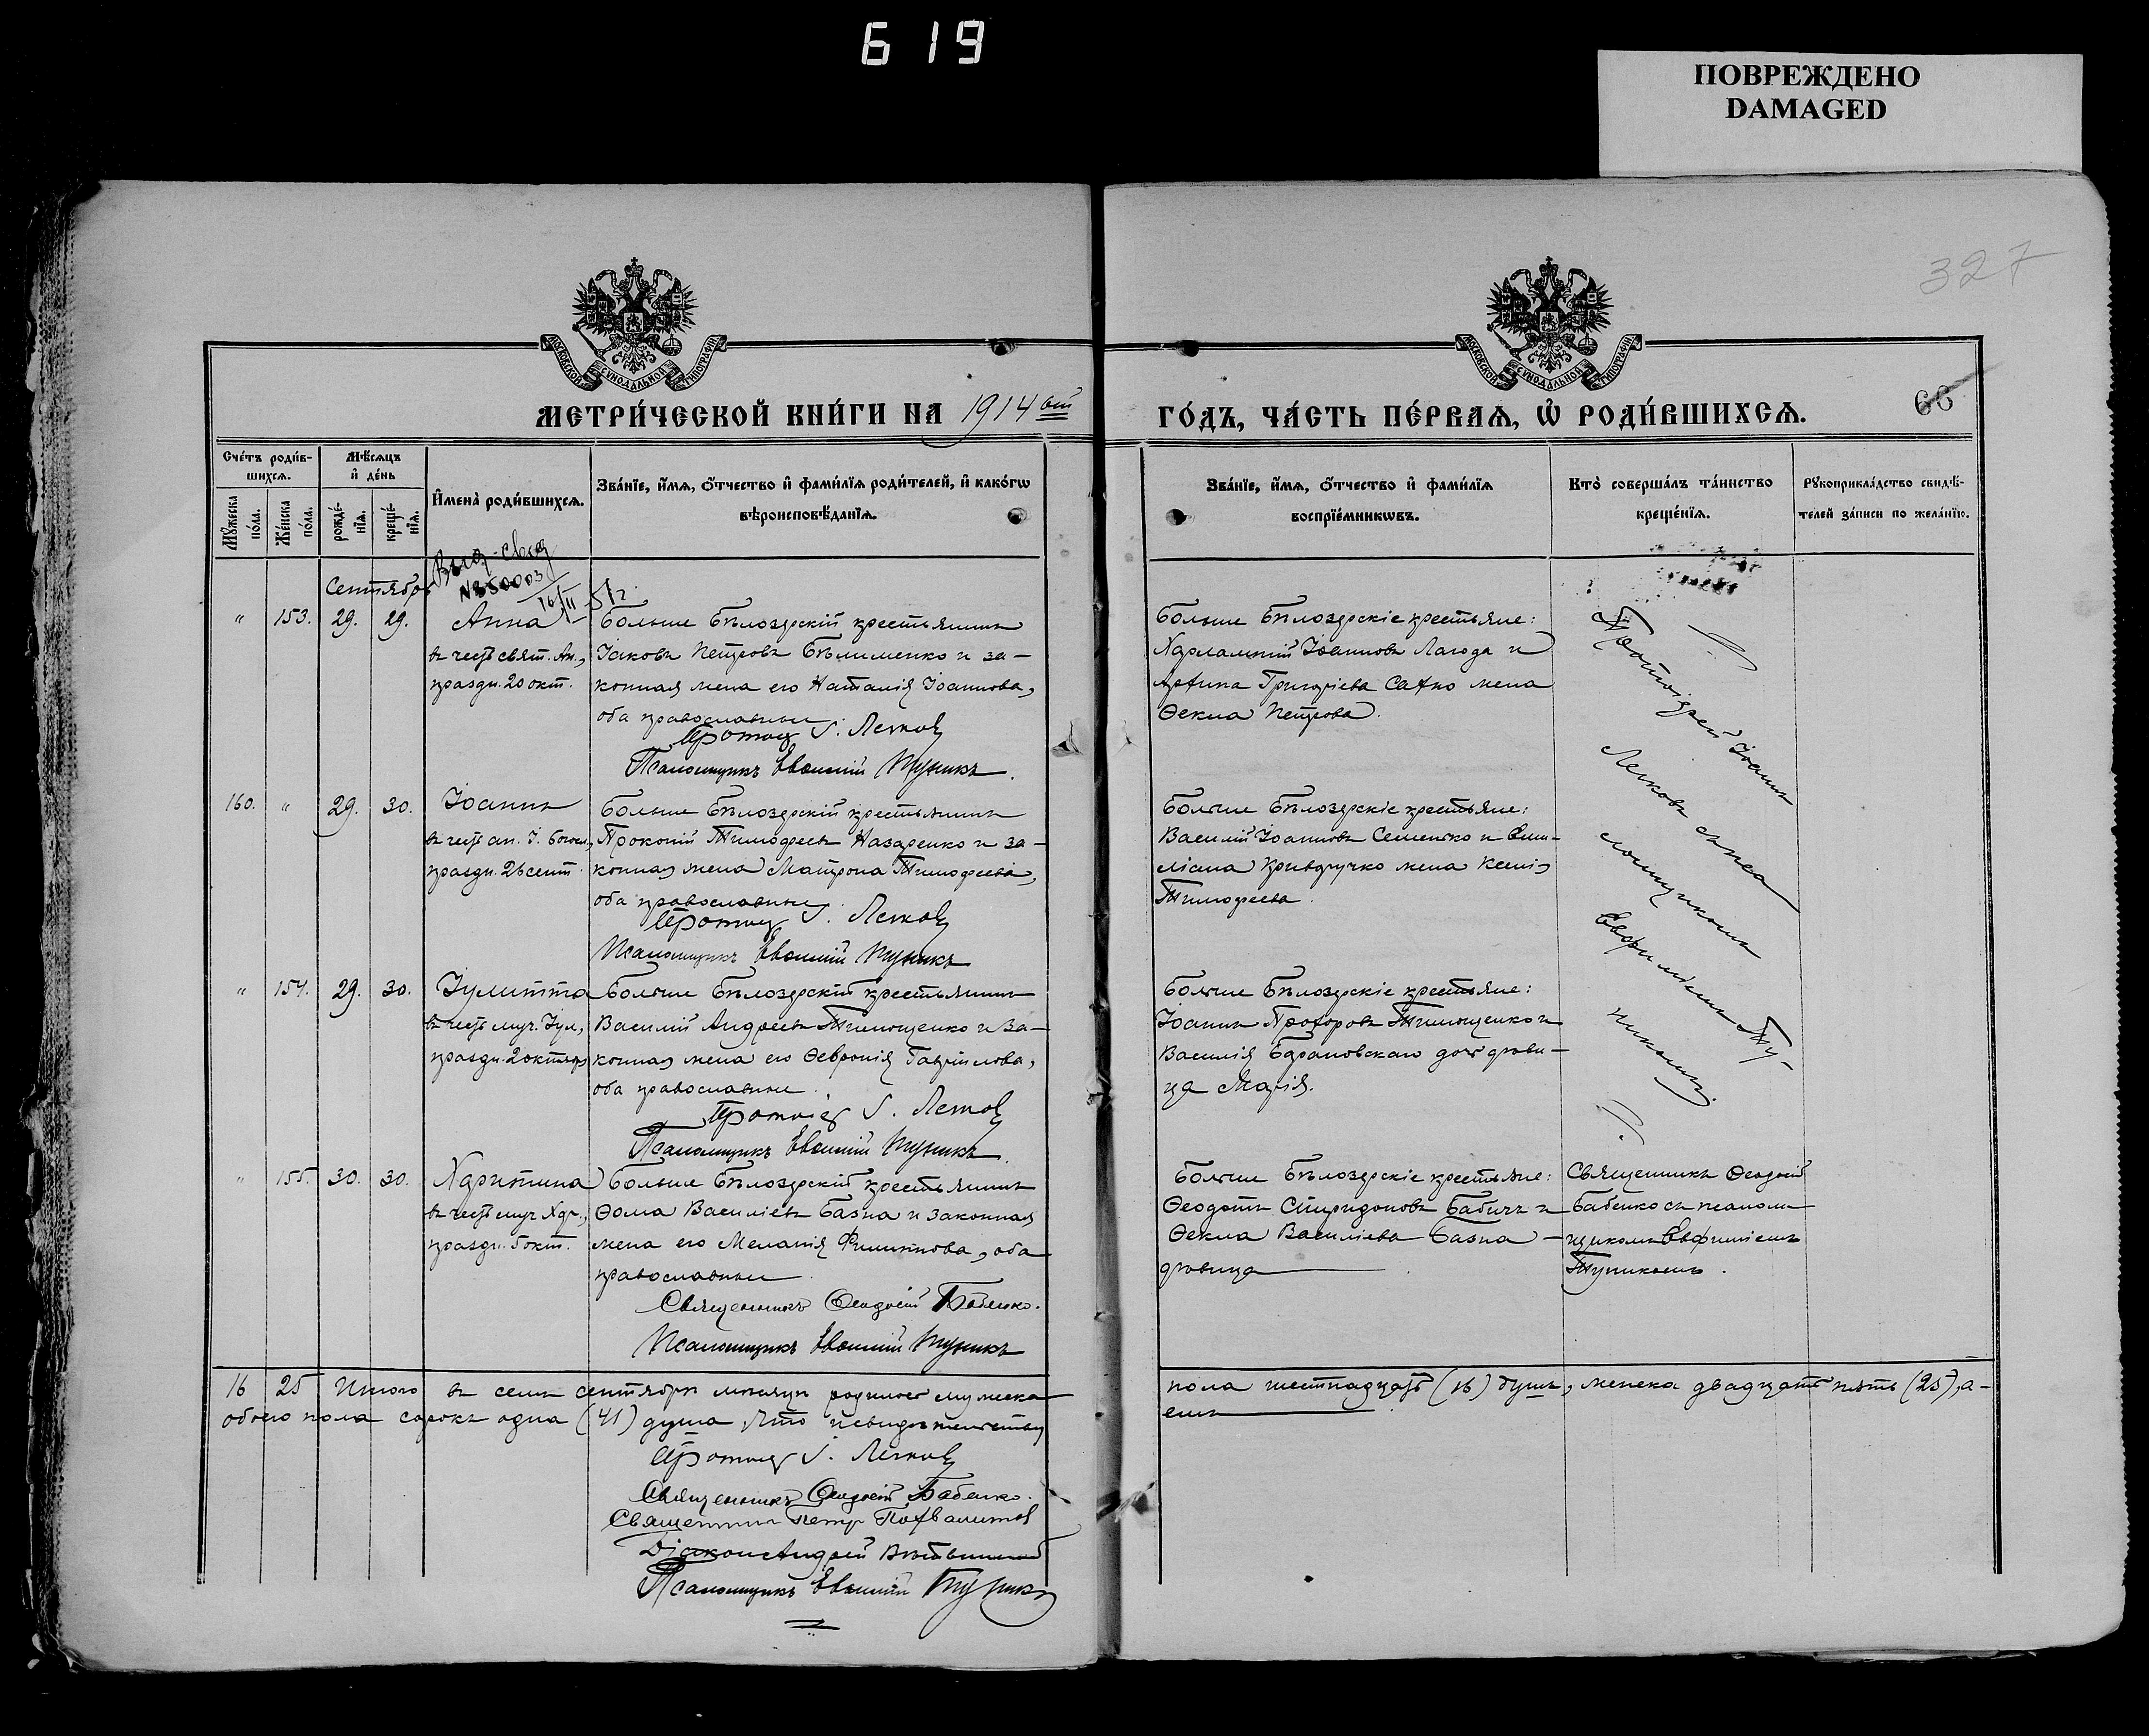 619
ПОВРЕЖДЕНО
DAMAGED
327
МОСКОВСКОЙ СѴНОДАЛЬНОЙ ТИПОГРАФІИ
МОСКОВСКОЙ СѴНОДАЛЬНОЙ ТИПОГРАФІИ
66
МЕТРИ́ЧЕСКОЙ КНИ́ГИ НА 1914 ый
ГО́ДЪ, ЧА́СТЬ ПЕ́РВАѦ, Ѡ РОДИ́ВШИХСѦ.
Сче́тъ роди́в-
шихсѧ.
Мꙋ́жеска
по́ла.
Же́нска
по́ла.
Мѣ́сѧцъ
и҆ де́нь
рожде́-
нїѧ.
креще́-
нїѧ.
И҆мена̀ роди́вшихсѧ.
Зва́нїе, и҆́мѧ, ѻ҆́тчество и҆ фами́лїѧ роди́телей, и҆ како́гѡ
вѣроисповѣ́данїѧ.
Зва́нїе, и҆́мѧ, ѻ҆́тчество и҆ фами́лїѧ
воспрїе́мникѡвъ.
Кто̀ соверша́лъ та́инство
креще́нїѧ.
Рꙋкоприкла́дство свидѣ́-
телей за́писи по жела́нїю.
Сентябрь
" 153. 29. 29. Анна
въ честь свят. Ан.,
праздн. 20 окт.
Больше Бѣлозерскій крестьянинъ
Іаковъ Петровъ Бѣлименко и за-
конная жена его Наталія Іоаннова,
оба православные.
Протоіер І. Легков
Псаломщикъ Евѳимій Тупикъ.
Больше Бѣлозерскіе крестьяне:
Харлампій Іоанновъ Лагода и
Григоріева жена
Ѳекла Петрова.
Протоіерей Іоаннъ
Легковъ съ пса
ломщикомъ
Евфиміемъ Ту-
пикомъ.
160. " 29. 30. Іоаннъ
въ честь ап. І. Богосл.,
праздн. 26 сент.
Больше Бѣлозерскій крестьянинъ
Прокопій Тимофеевъ Назаренко и за-
конная жена Матрона Тимофеева,
оба православные.
Протоіер І. Легков
Псаломщикъ Евѳимій Тупикъ
Больше Бѣлозерскіе крестьяне:
Василій Іоанновъ Семенко и Еми-
ліана Криворучко жена Ксенія
Тимофеева.
" 154. 29. 30. Іулитта
въ честь муч. Іул.,
праздн. 2 октября
Больше Бѣлозерскій крестьянинъ
Василій Андреевъ Тимощенко и за-
конная жена его Ѳевронія Гавріилова,
оба православные.
Протоіер І. Легков
Псаломщикъ Евѳимій Тупикъ.
Больше Бѣлозерскіе крестьяне:
Іоаннъ Прохоровъ Тимощенко и
Василія Барановскаго дочь дѣви-
ца Марія.
" 155. 30. 30. Харитина
въ честь муч. Хар.,
праздн. 5 окт.
Больше Бѣлозерскій крестьянинъ
Ѳома Василіевъ Базна и законная
жена его Меланія Филиппова, оба
православные.
Священникъ Ѳеодосій Бабенко.
Псаломщикъ Евѳимій Тупикъ
Больше Бѣлозерскіе крестьяне:
Ѳеодотъ Спиридоновъ Бабичъ и
Ѳекла Василіева Базна -
дѣвица
Священникъ Ѳеодосій
Бабенко съ псалом-
щикомъ Евфиміемъ
Тупикомъ.
16 25 Итого въ семъ сентябрѣ мѣсяцѣ родилось мужеска
пола шестнадцать (16) душъ, женска двадцать пять (25), а-
обоего пола сорокъ одна (41) душа, что и свидѣтельству
емъ
Протоіер І. Легков
Священникъ Ѳеодосій Бабенко.
Священникъ Петръ Похвалитов
Діаконъ Андрей
Псаломщикъ Евѳимій Тупикъ